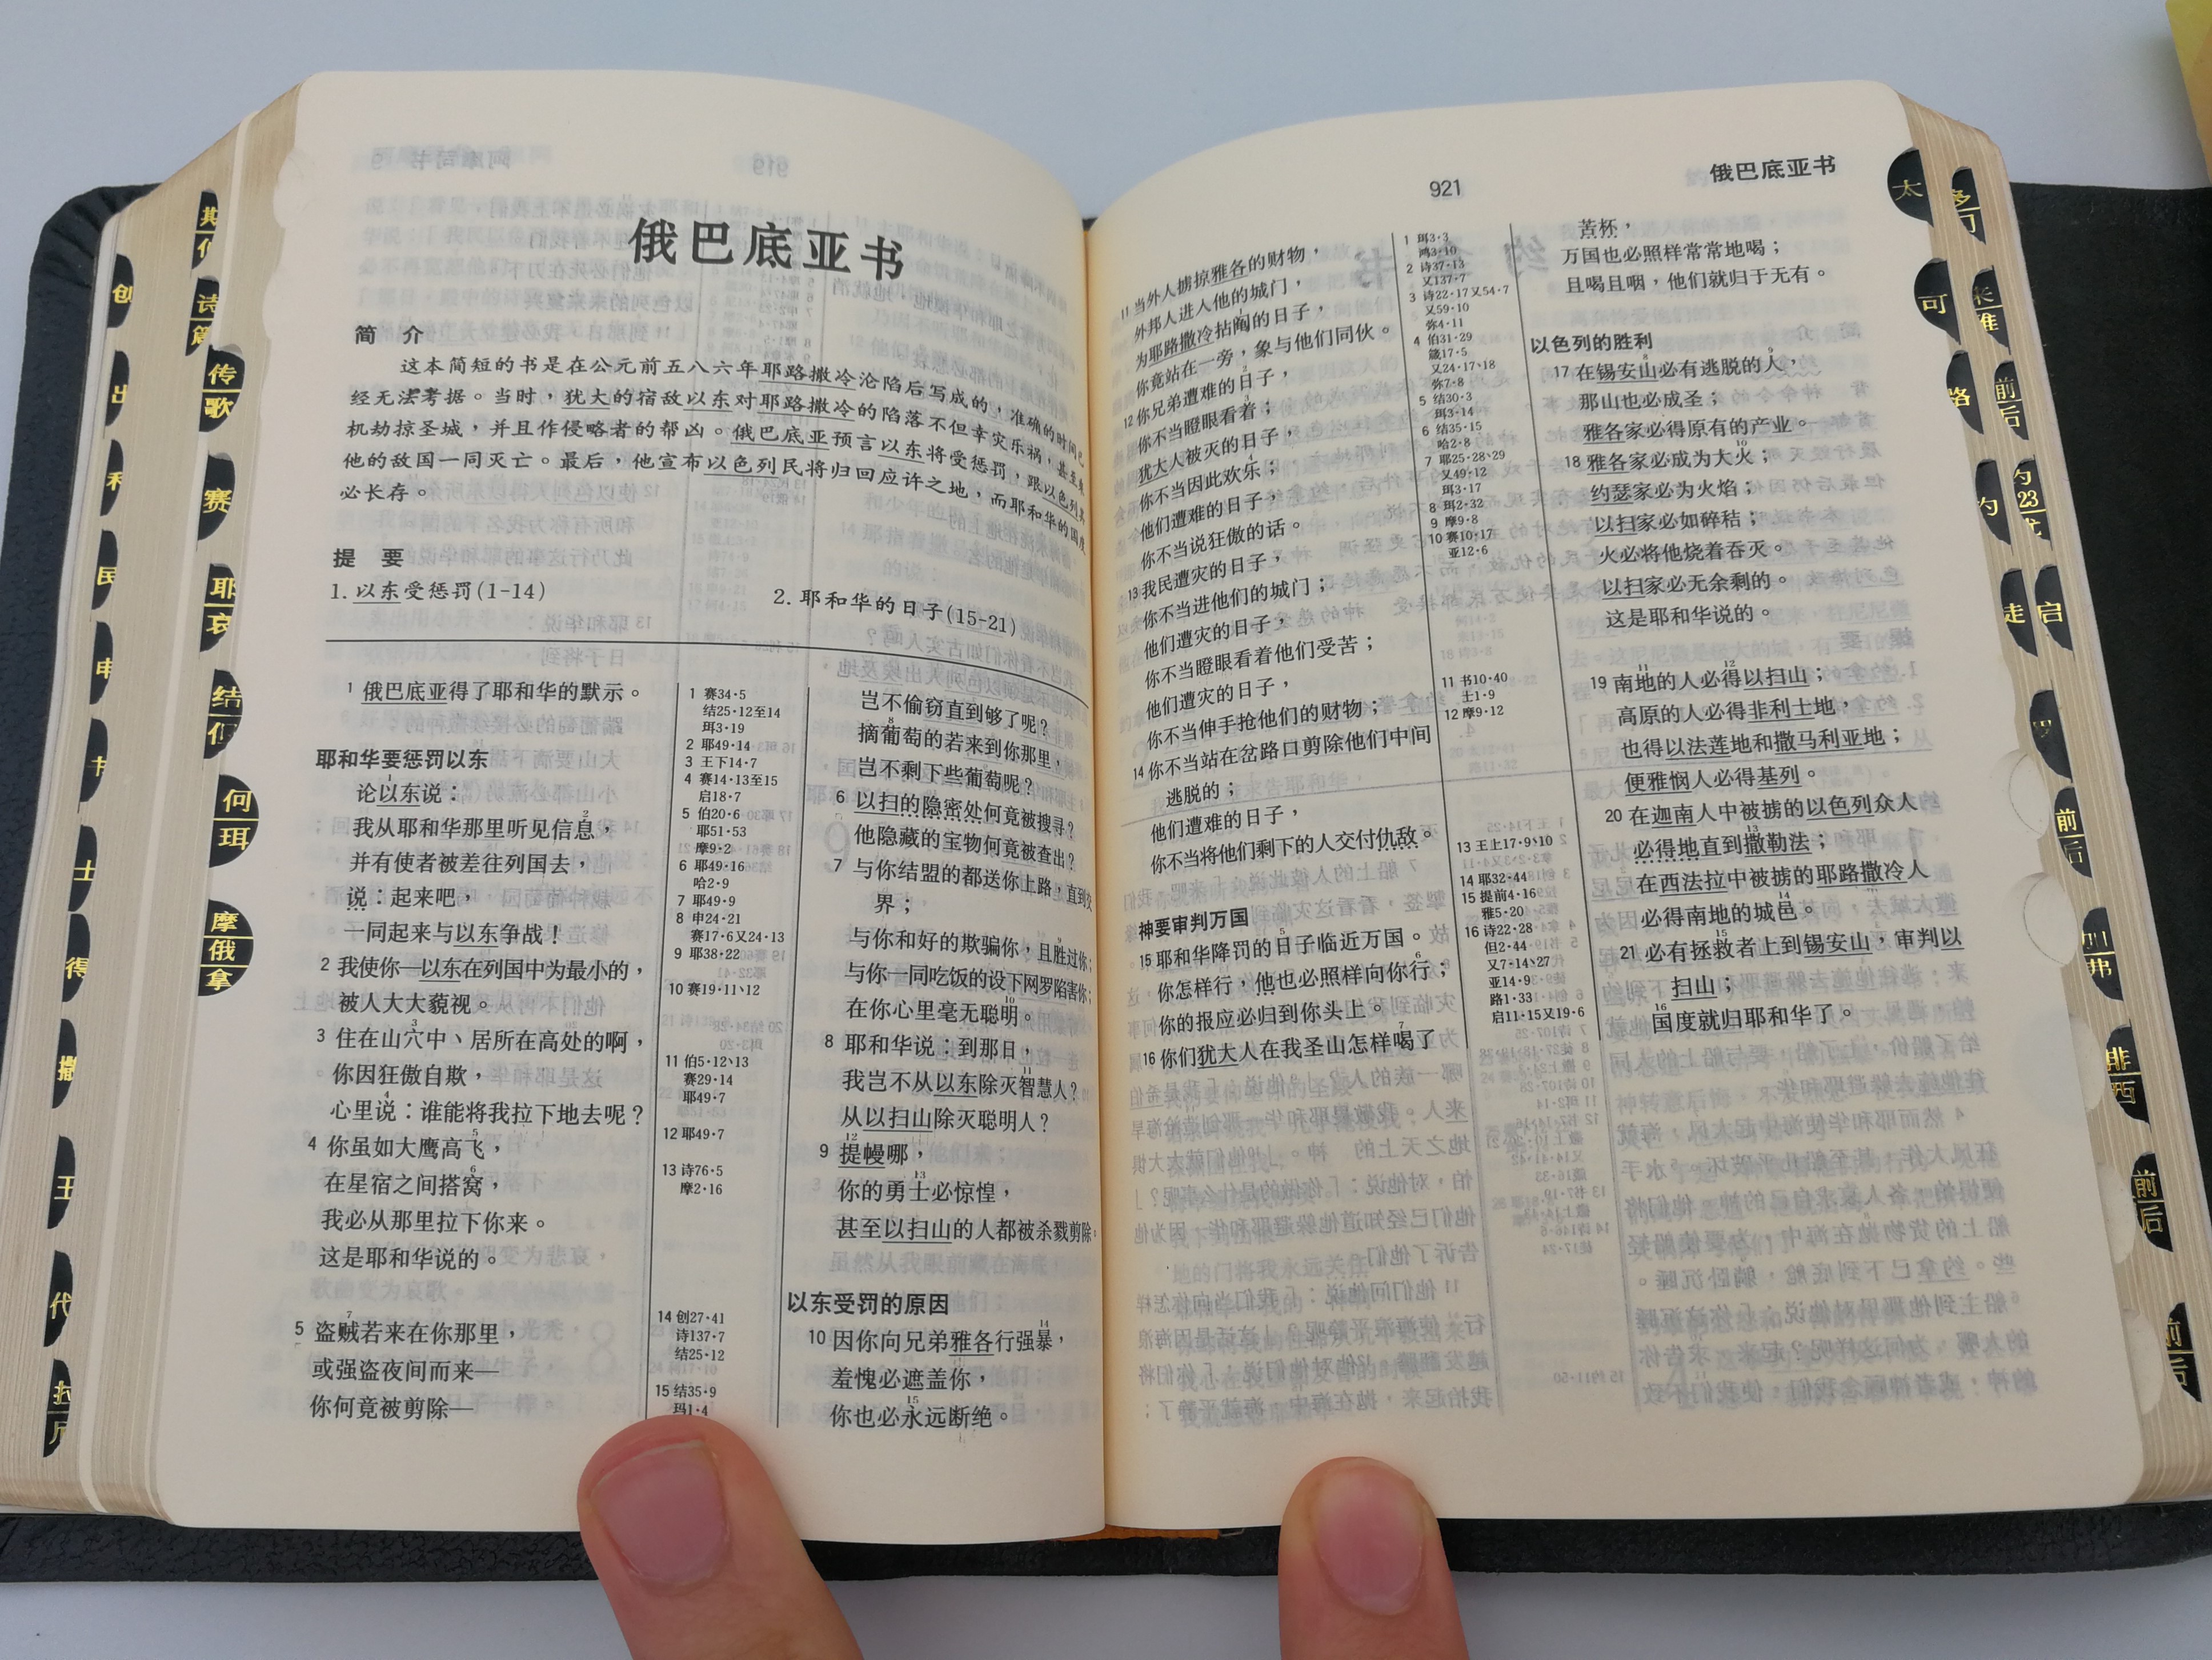 俄巴底亚书
简 介
这本简短的书是在公元前五八六年耶路撒冷沦陷后写成的，准确的时间已
经无法考据。当时，犹大的宿敌以东对耶路撒冷的陷落不但幸灾乐祸，甚至乘
机劫掠圣城，并且作侵略者的帮凶。俄巴底亚预言以东将受惩罚，跟以色列其
他的敌国一同灭亡。最后，他宣布以色列民将归回应许之地，而耶和华的国度
必长存。
提 要
1. 以东受惩罚(1-14)
2. 耶和华的日子(15-21)
1 俄巴底亚得了耶和华的默示。
耶和华要惩罚以东
论以东说：
我从耶和华那里听见信息，
并有使者被差往列国去，
说：起来吧，
一同起来与以东争战！
2 我使你—以东在列国中为最小的，
被人大大藐视。
3 住在山穴中、居所在高处的啊，
你因狂傲自欺，
心里说：谁能将我拉下地去呢？
4 你虽如大鹰高飞，
在星宿之间搭窝，
我必从那里拉下你来。
这是耶和华说的。
5 盗贼若来在你那里，
或强盗夜间而来—
你何竟被剪除—
1 赛34·5
结25·12至14
珥3·19
2 耶49·14
3 王下14·7
4 赛14·13至15
启18·7
5 伯20·6
耶51·53
摩9·2
6 耶49·16
哈2·9
7 耶49·9
8 申24·21
赛17·6又24·13
9 耶38·22
10 赛19·11、12
11 伯5·12、13
赛29·14
耶49·7
12 耶49·7
13 诗76·5
摩2·16
14 创27·41
诗137·7
结25·12
15 结35·9
玛1·4
岂不偷窃直到够了呢？
摘葡萄的若来到你那里，
岂不剩下些葡萄呢？
6 以扫的隐密处何竟被搜寻？
他隐藏的宝物何竟被查出？
7 与你结盟的都送你上路，直到交
界；
与你和好的欺骗你，且胜过你；
与你一同吃饭的设下网罗陷害你；
在你心里毫无聪明。
8 耶和华说：到那日，
我岂不从以东除灭智慧人？
从以扫山除灭聪明人？
9 提幔哪，
你的勇士必惊惶，
甚至以扫山的人都被杀戮剪除。
以东受罚的原因
10 因你向兄弟雅各行强暴，
羞愧必遮盖你，
你也必永远断绝。
921
俄巴底亚书
11 当外人掳掠雅各的财物，
外邦人进入他的城门，
为耶路撒冷拈阄的日子，
你竟站在一旁，象与他们同伙。
12 你兄弟遭难的日子，
你不当瞪眼看着；
犹大人被灭的日子，
你不当因此欢乐；
他们遭难的日子，
你不当说狂傲的话。
13 我民遭灾的日子，
你不当进他们的城门；
他们遭灾的日子，
你不当瞪眼看着他们受苦；
他们遭灾的日子，
你不当伸手抢他们的财物；
14 你不当站在岔路口剪除他们中间
逃脱的；
他们遭难的日子，
你不当将他们剩下的人交付仇敌。
神要审判万国
15 耶和华降罚的日子临近万国。
你怎样行，他也必照样向你行；
你的报应必归到你头上。
16 你们犹大人在我圣山怎样喝了
1 珥3·3
鸿3·10
2 诗37·13
又137·7
3 诗22·17又54·7
又59·10
弥4·11
4 伯31·29
箴17·5
又24·17、18
弥7·8
5 结30·3
珥3·14
6 结35·15
哈2·8
7 耶25·28、29
又49·12
珥3·17
8 珥2·32
9 摩9·8
10 赛10·17
亚12·6
11 书10·40
士1·9
12 摩9·12
13 王上17·9、10
14 耶32·44
15 提前4·16
雅5·20
16 诗22·28
但2·44
又7·14、27
亚14·9
路1·33
启11·15又19·6
苦杯，
万国也必照样常常地喝；
且喝且咽，他们就归于无有。
以色列的胜利
17 在锡安山必有逃脱的人，
那山也必成圣；
雅各家必得原有的产业。
18 雅各家必成为大火；
约瑟家必为火焰；
以扫家必如碎秸；
火必将他烧着吞灭。
以扫家必无余剩的。
这是耶和华说的。
19 南地的人必得以扫山；
高原的人必得非利士地，
也得以法莲地和撒马利亚地；
便雅悯人必得基列。
20 在迦南人中被掳的以色列众人
必得地直到撒勒法；
在西法拉中被掳的耶路撒冷人
必得南地的城邑。
21 必有拯救者上到锡安山，审判以
扫山；
国度就归耶和华了。
创
出
利
民
申
书
士
得
撒
王
代
诗
篇
传
歌
赛
耶
哀
结
但
何
珥
摩
俄
拿
太
可
路
约
徒
罗
前
后
加
弗
腓
西
前
后
前
后
前
后
23
启